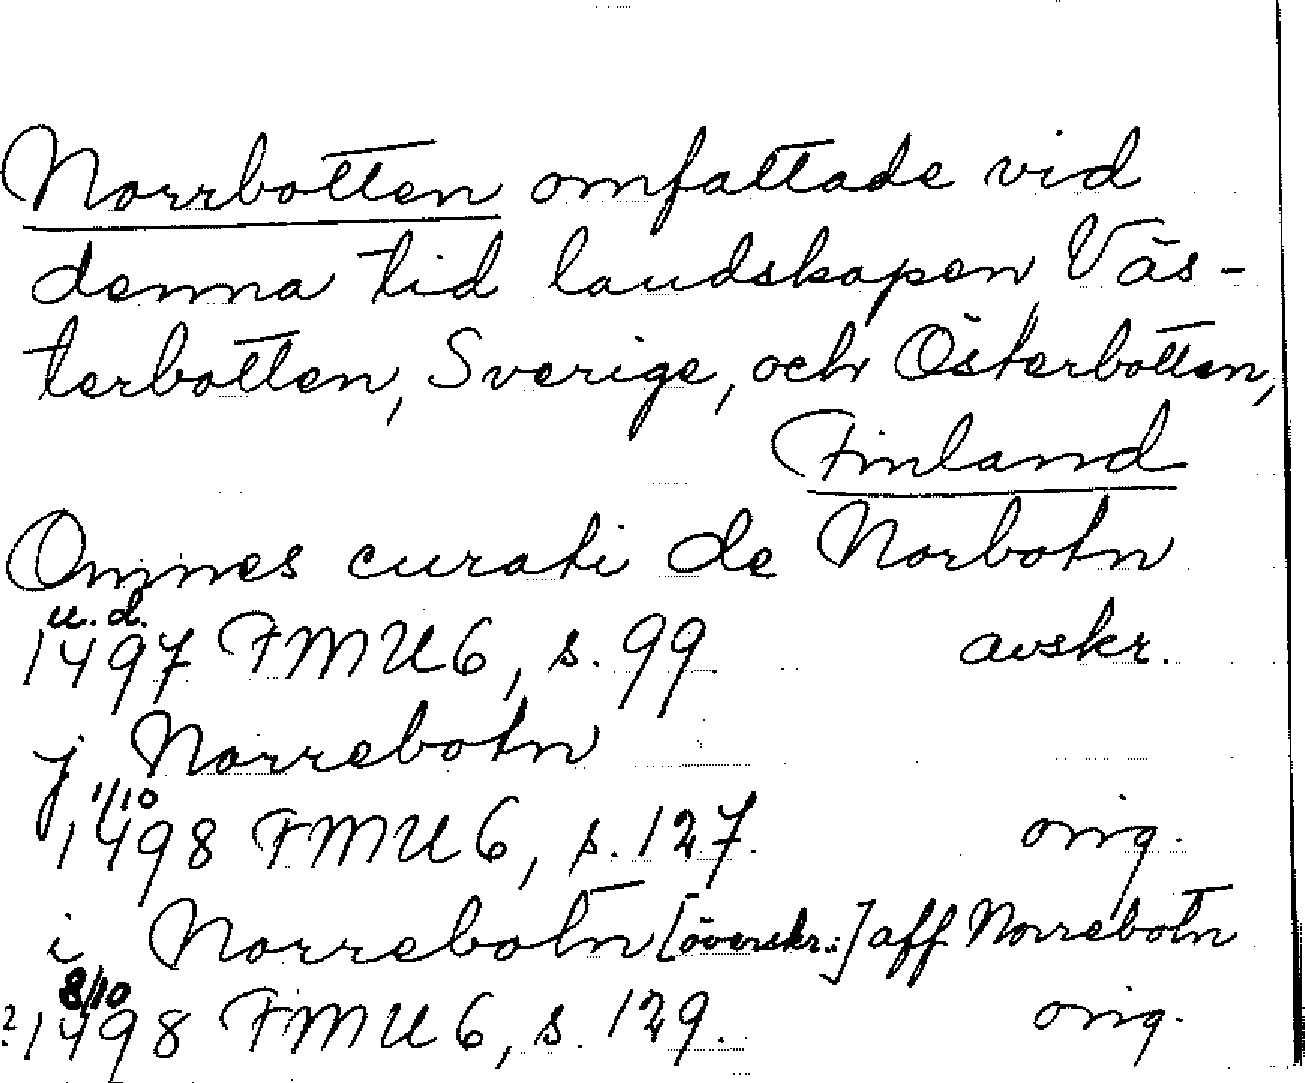 Norrbotten omfattade vid
denna tid landskapen Väs-
terbotten, Sverige, och Österbotten,
Finland
Omnes curati de Norbotn
u.d.
1497 FMU 6, s. 99 avskr.
j Norrebotn
1/10
1498 FMU 6, s. 127. orig.
i Norrebotn [överskr.:] aff Norrebotn
8/10
1498 FMU 6, s. 129. orig.